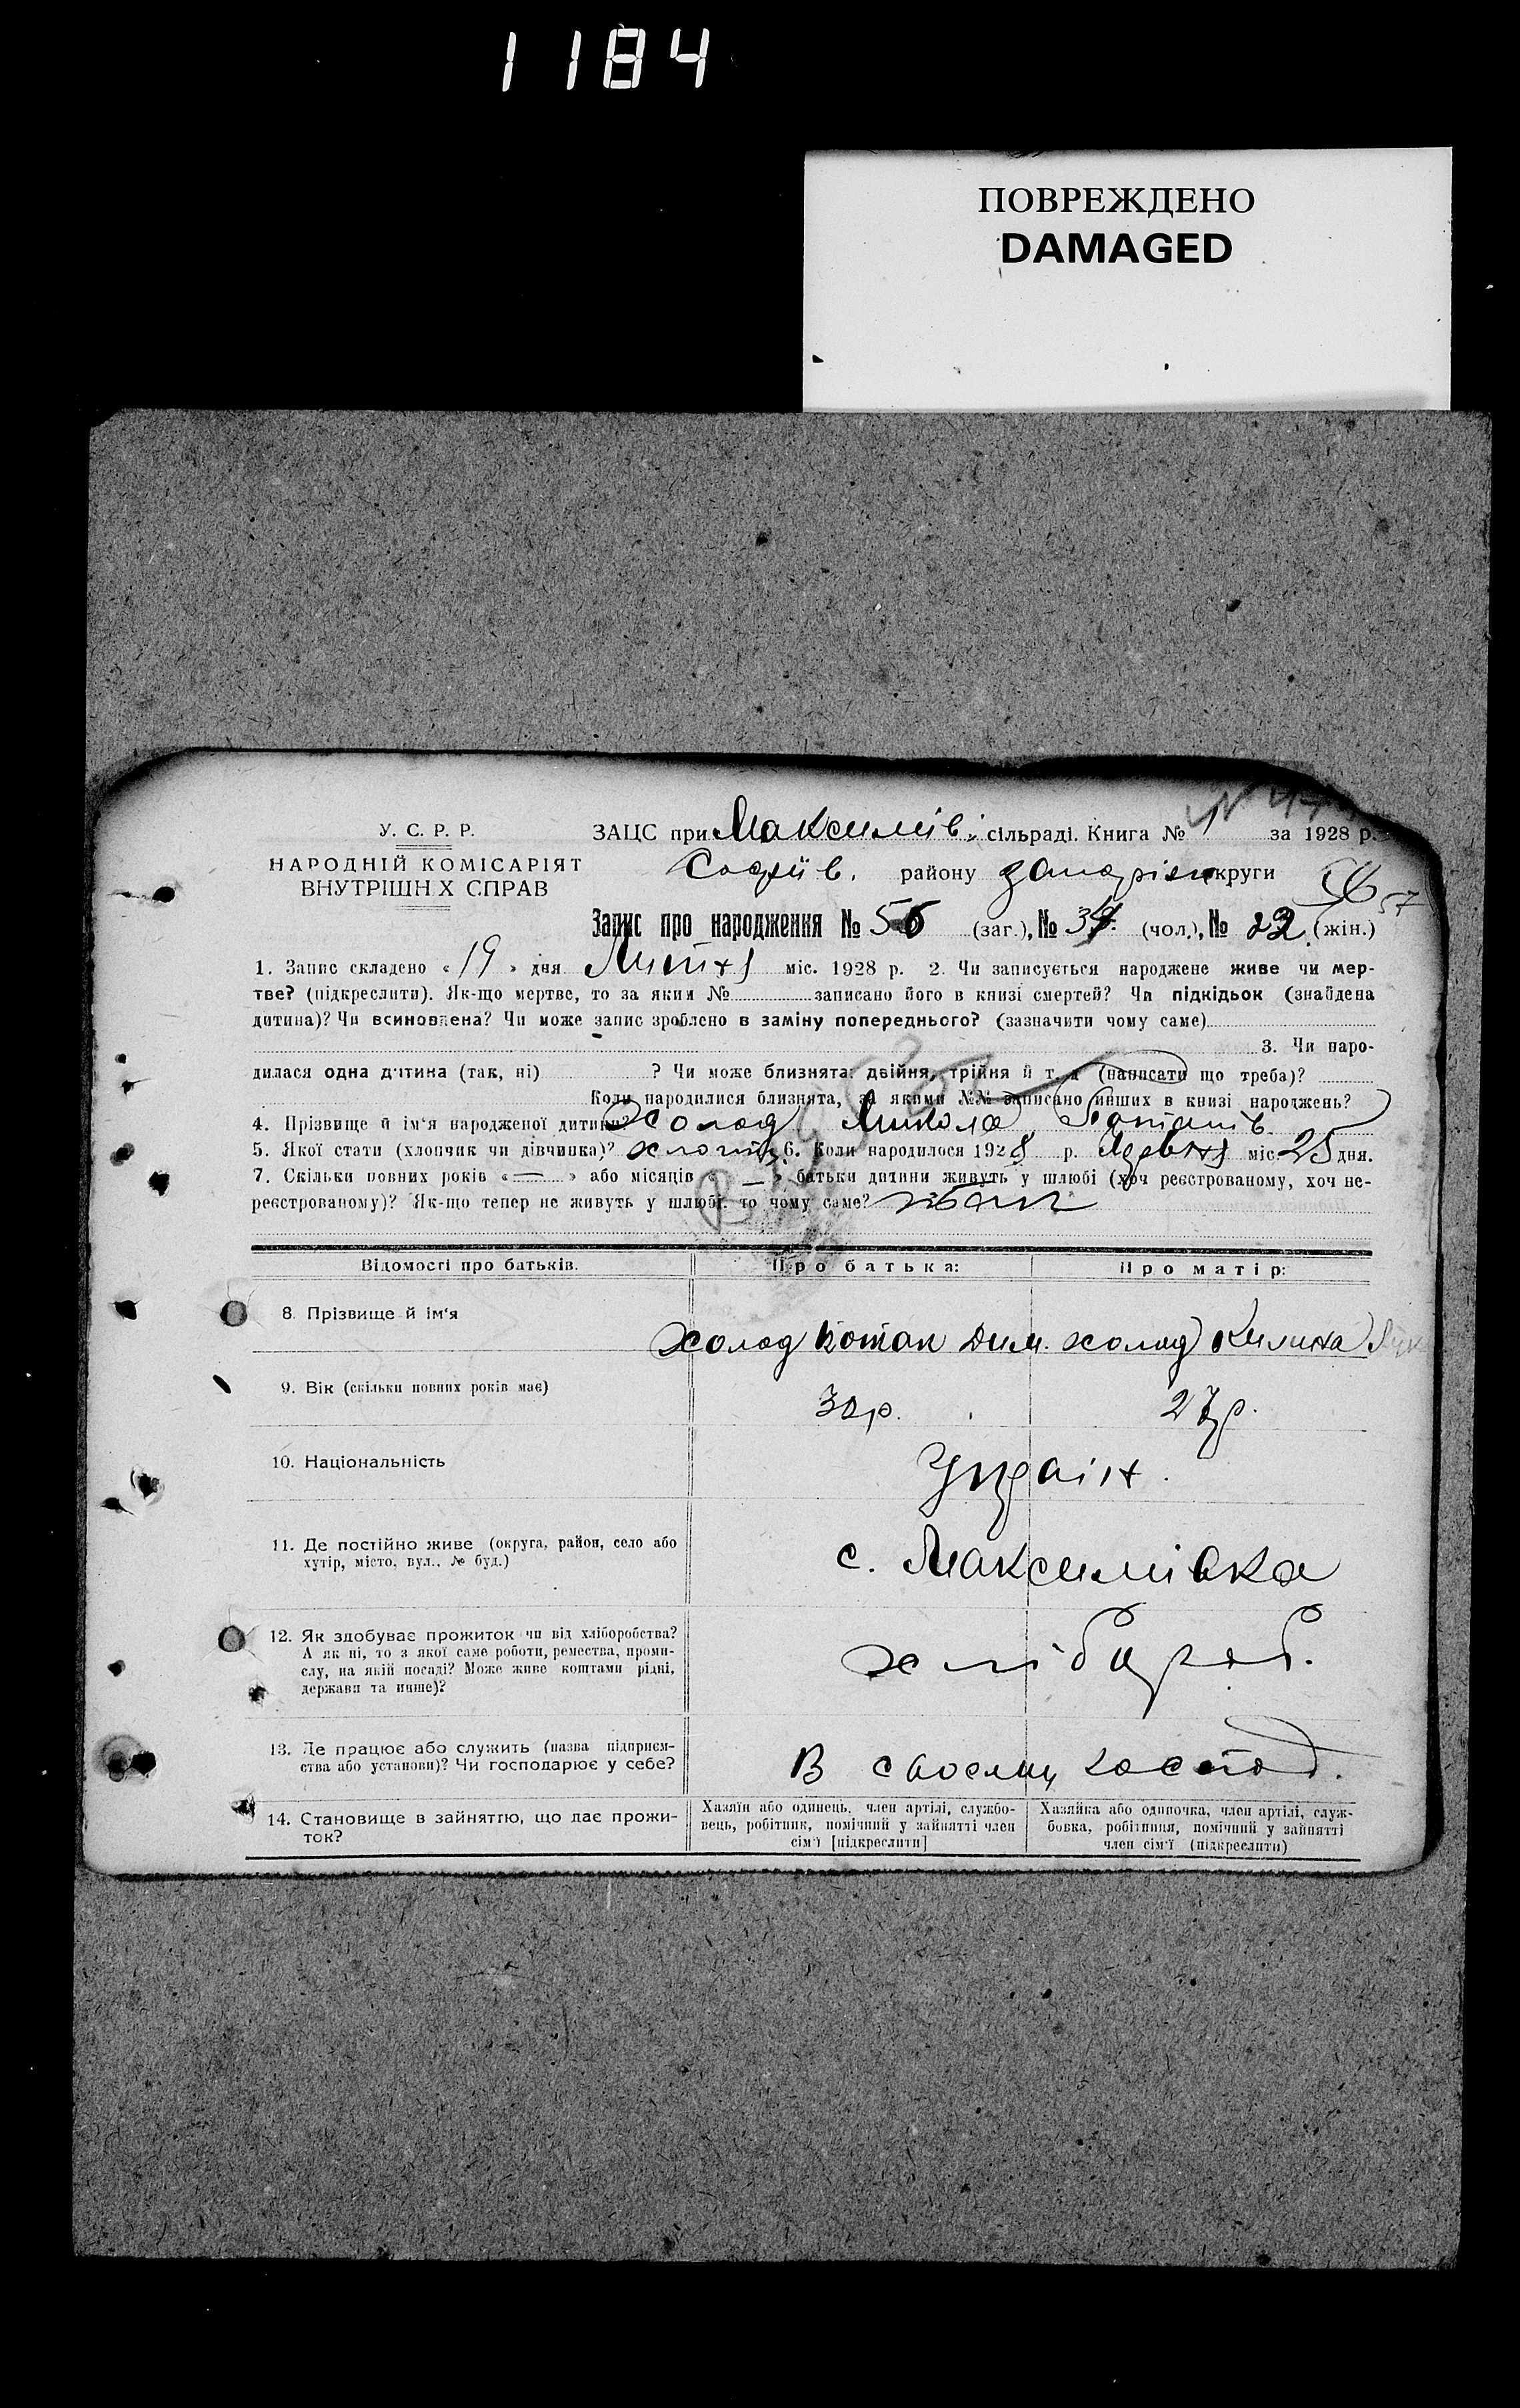 1184
ПОВРЕЖДЕНО
DAMAGED
У. С. Р. Р.
НАРОДНІЙ КОМІСАРІЯТ
ВНУТРІШН Х СПРАВ
ЗАЦС при Максимів. сільраді. Книга № 1 за 1928 р.
Софіїв. району округи
57
Запис про народження № 56 (заг.), № 34 (чол.), № 22 (жін.)
1. Запис складено « 19 » дня міс. 1928 р. 2. Чи записується народжене живе чи мер-
тве? (підкреслити). Як-що мертве, то за яким № записано його в книзі смертей? Чи підкідьок (знайдена
дитина)? Чи всиновлена? Чи може запис зроблено в заміну попереднього? (зазначити чому саме)
3. Чи наро-
дилася одна дитина (так, ні) ? Чи може близнята: двійня, трійня й т. д (написати що треба)?
Коли народилися близнята, за якими №№ записано инших в книзі народжень?
4. Прізвище й ім'я народженої дитини? Холод Микола
5. Якої стати (хлопчик чи дівчинка)? хлопч. 6. Коли народилося 1928 р. міс. 25 дня.
7. Скільки повних років « — » або місяців « — » батьки дитини живуть у шлюбі (хоч реєстрованому, хоч не-
реєстрованому)? Як-що тепер не живуть у шлюбі, то чому саме?
Відомості про батьків.
Про батька:
Про матір:
8. Прізвище й ім'я
Холод Потап Дим. Холод Килина
9. Вік (скільки повних років має)
30р. 27р.
10. Національність
Україн.
11. Де постійно живе (округа, район, село або
хутір, місто, вул., № буд.)
с. Максимівка
12. Як здобуває прожиток чи від хліборобства?
А як ні, то з якої саме роботи, ремества, проми-
слу, на якій посаді? Може живе коштами рідні,
держави та инше)?
хлібороб.
13. Де працює або служить (назва підприєм-
ства або установи)? Чи господарює у себе?
В своєму господ.
14. Становище в зайняттю, що дає прожи-
ток?
Хазяїн або одинець, член артілі, службо-
вець, робітник, помічний у зайнятті член
сім'ї [підкреслити]
Хазяйка або одиночка, член артілі, служ-
бовка, робітниця, помічний у зайнятті
член сім'ї (підкреслити)